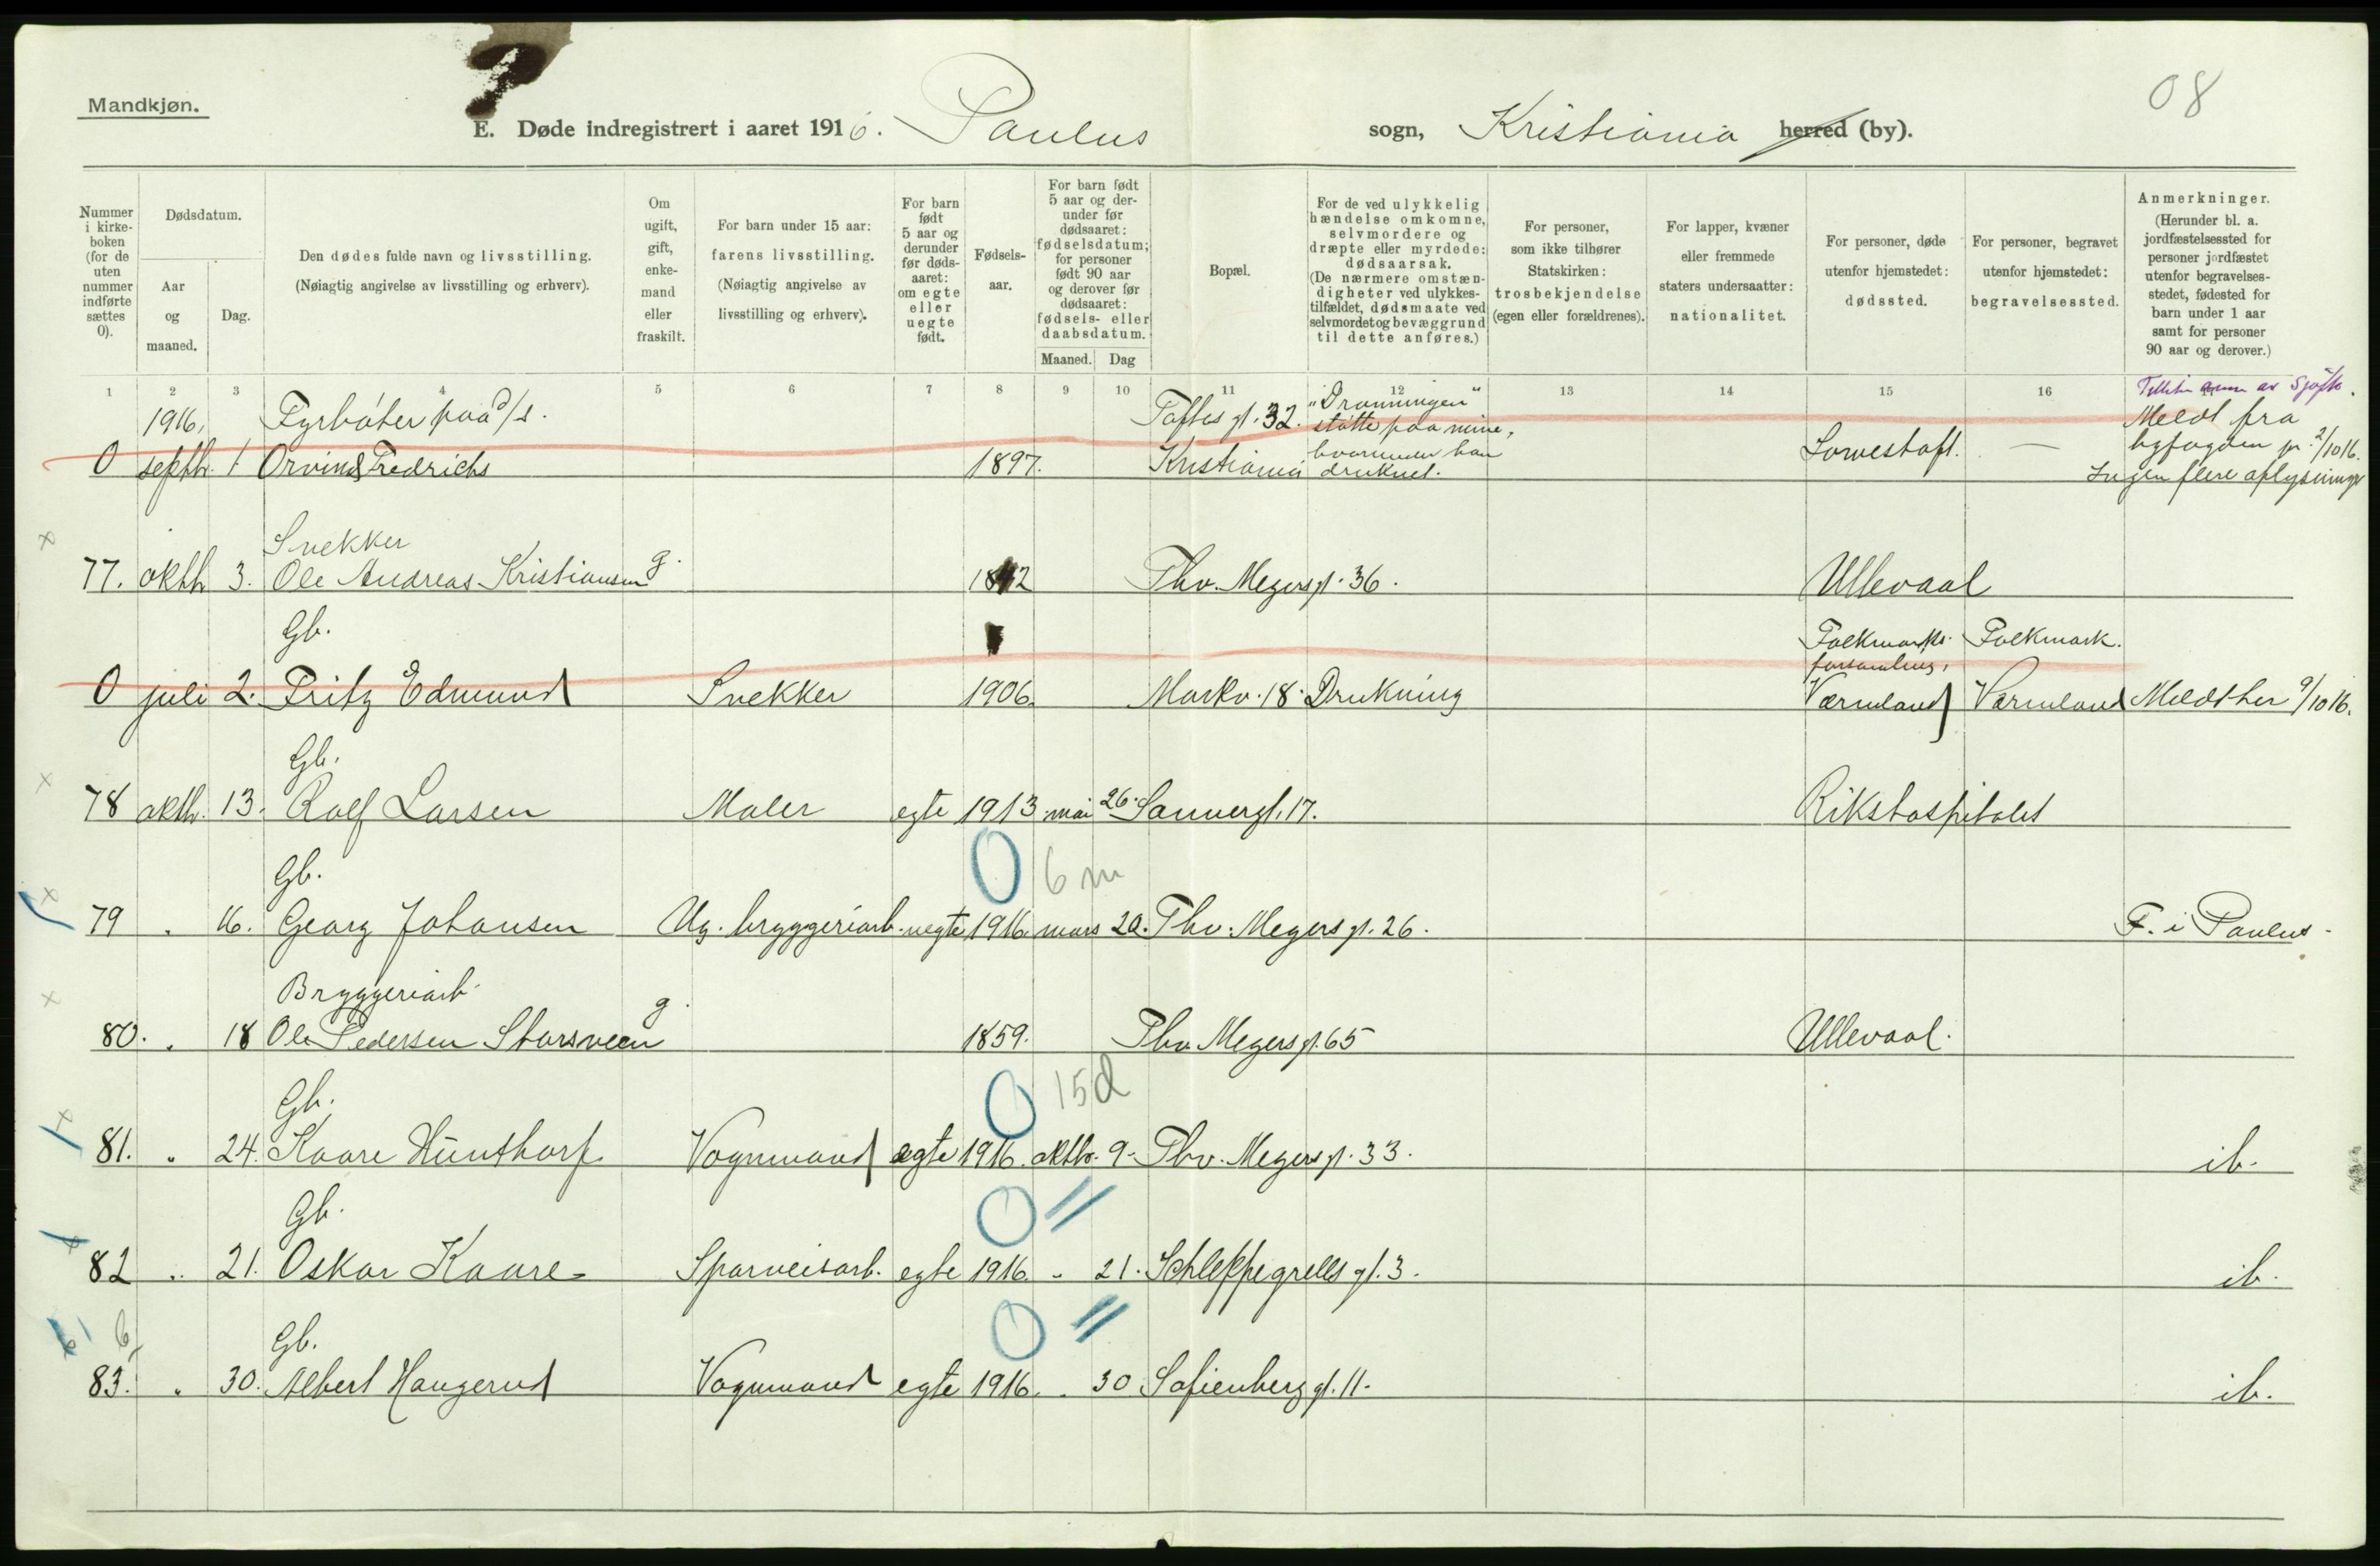 08
Mandkjøn.
E. Døde indregistrert i aaret 1916. Paulus sogn, Kristiania herred (by).
Nummer i kirkeboken (for de uten nummer indførte sættes 0).
Dødsdatum.
Aar og maaned.
Dag.
Den dødes fulde navn og livsstilling.
(Nøiagtig angivelse av livsstilling og erhverv).
Om ugift, gift, enkemand eller fraskilt.
For barn under 15 aar:
farens livsstilling.
(Nøiagtig angivelse av livsstilling og erhverv).
For barn født 5 aar og derunder før dødsaaret: om egte eller uegte født.
Fødselsaar.
For barn født 5 aar og derunder før dødsaaret: fødselsdatum; for personer født 90 aar og derover før dødsaaret: fødsels- eller daabsdatum.
Maaned. Dag
Bopæl.
For de ved ulykkelig hændelse omkomne, selvmordere og dræpte eller myrdede: dødsaarsak.
(De nærmere omstændigheter ved ulykkestilfældet, dødsmaate ved selvmordet og bevæggrund til dette anføres.)
For personer, som ikke tilhører Statskirken: trosbekjendelse (egen eller forældrenes).
For lapper, kvæner eller fremmede staters undersaatter: nationalitet.
For personer, døde utenfor hjemstedet: dødssted.
For personer, begravet utenfor hjemstedet: begravelsessted.
Anmerkninger.
(Herunder bl. a. jordfæstelsessted for personer jordfæstet utenfor begravelsesstedet, fødested for barn under 1 aar samt for personer 90 aar og derover.)
1 2 3 4 5 6 7 8 9 10 11 12 13 14 15 16
1916. Fyrbøter paa d/s. Toftes gt. 32. "Dronningen" støtte paa mine, Meldt fra
0 septbr. 1 Orvind Fredrichs 1897. Kristiania hvorunder han druknet. Lowestoft. — byfogden pr. 2/10 16.
Ingen flere oplysninger
Snekker
77. oktbr 3. Ole Andreas Kristiansen g. 1842 Thv. Meyersgt. 36. Ullevaal
Gb. Folkmarks forsamling, Folkmark.
0 juli 2. Fritz Edmund Snekker 1906. Markv. 18. Drukning Værmland Værmland Meldt her 9/10 16.
Gb.
78 oktbr. 13. Rolf Larsen Maler egte 1913 mai 26. Sannergt. 17. Rikshospitalet
Gb. 0 6 m
79 " 16. Georg Johansen Ug. bryggeriarb. uegte 1916 mars 20. Thv. Meyers gt. 26. F. i Paulus.
Bryggeriarb.
80. " 18 Ole Pedersen Storsveen g. 1859. Thv. Meyersgt. 65 Ullevaal.
Gb. 0 15 d
81. " 24. Kaare Hünthorf Vognmand egte 1916. oktbr. 9. Thv. Meyersgt. 33. ib.
Gb. 0 "
82 " 21. Oskar Kaare Sporveisarb. egte 1916. " 21. Schleppegrells gt. 3. ib.
6 Gb. 0 "
83. " 30. Albert Haugerud Vognmand egte 1916. " 30 Sofienberg gt. 11. ib.